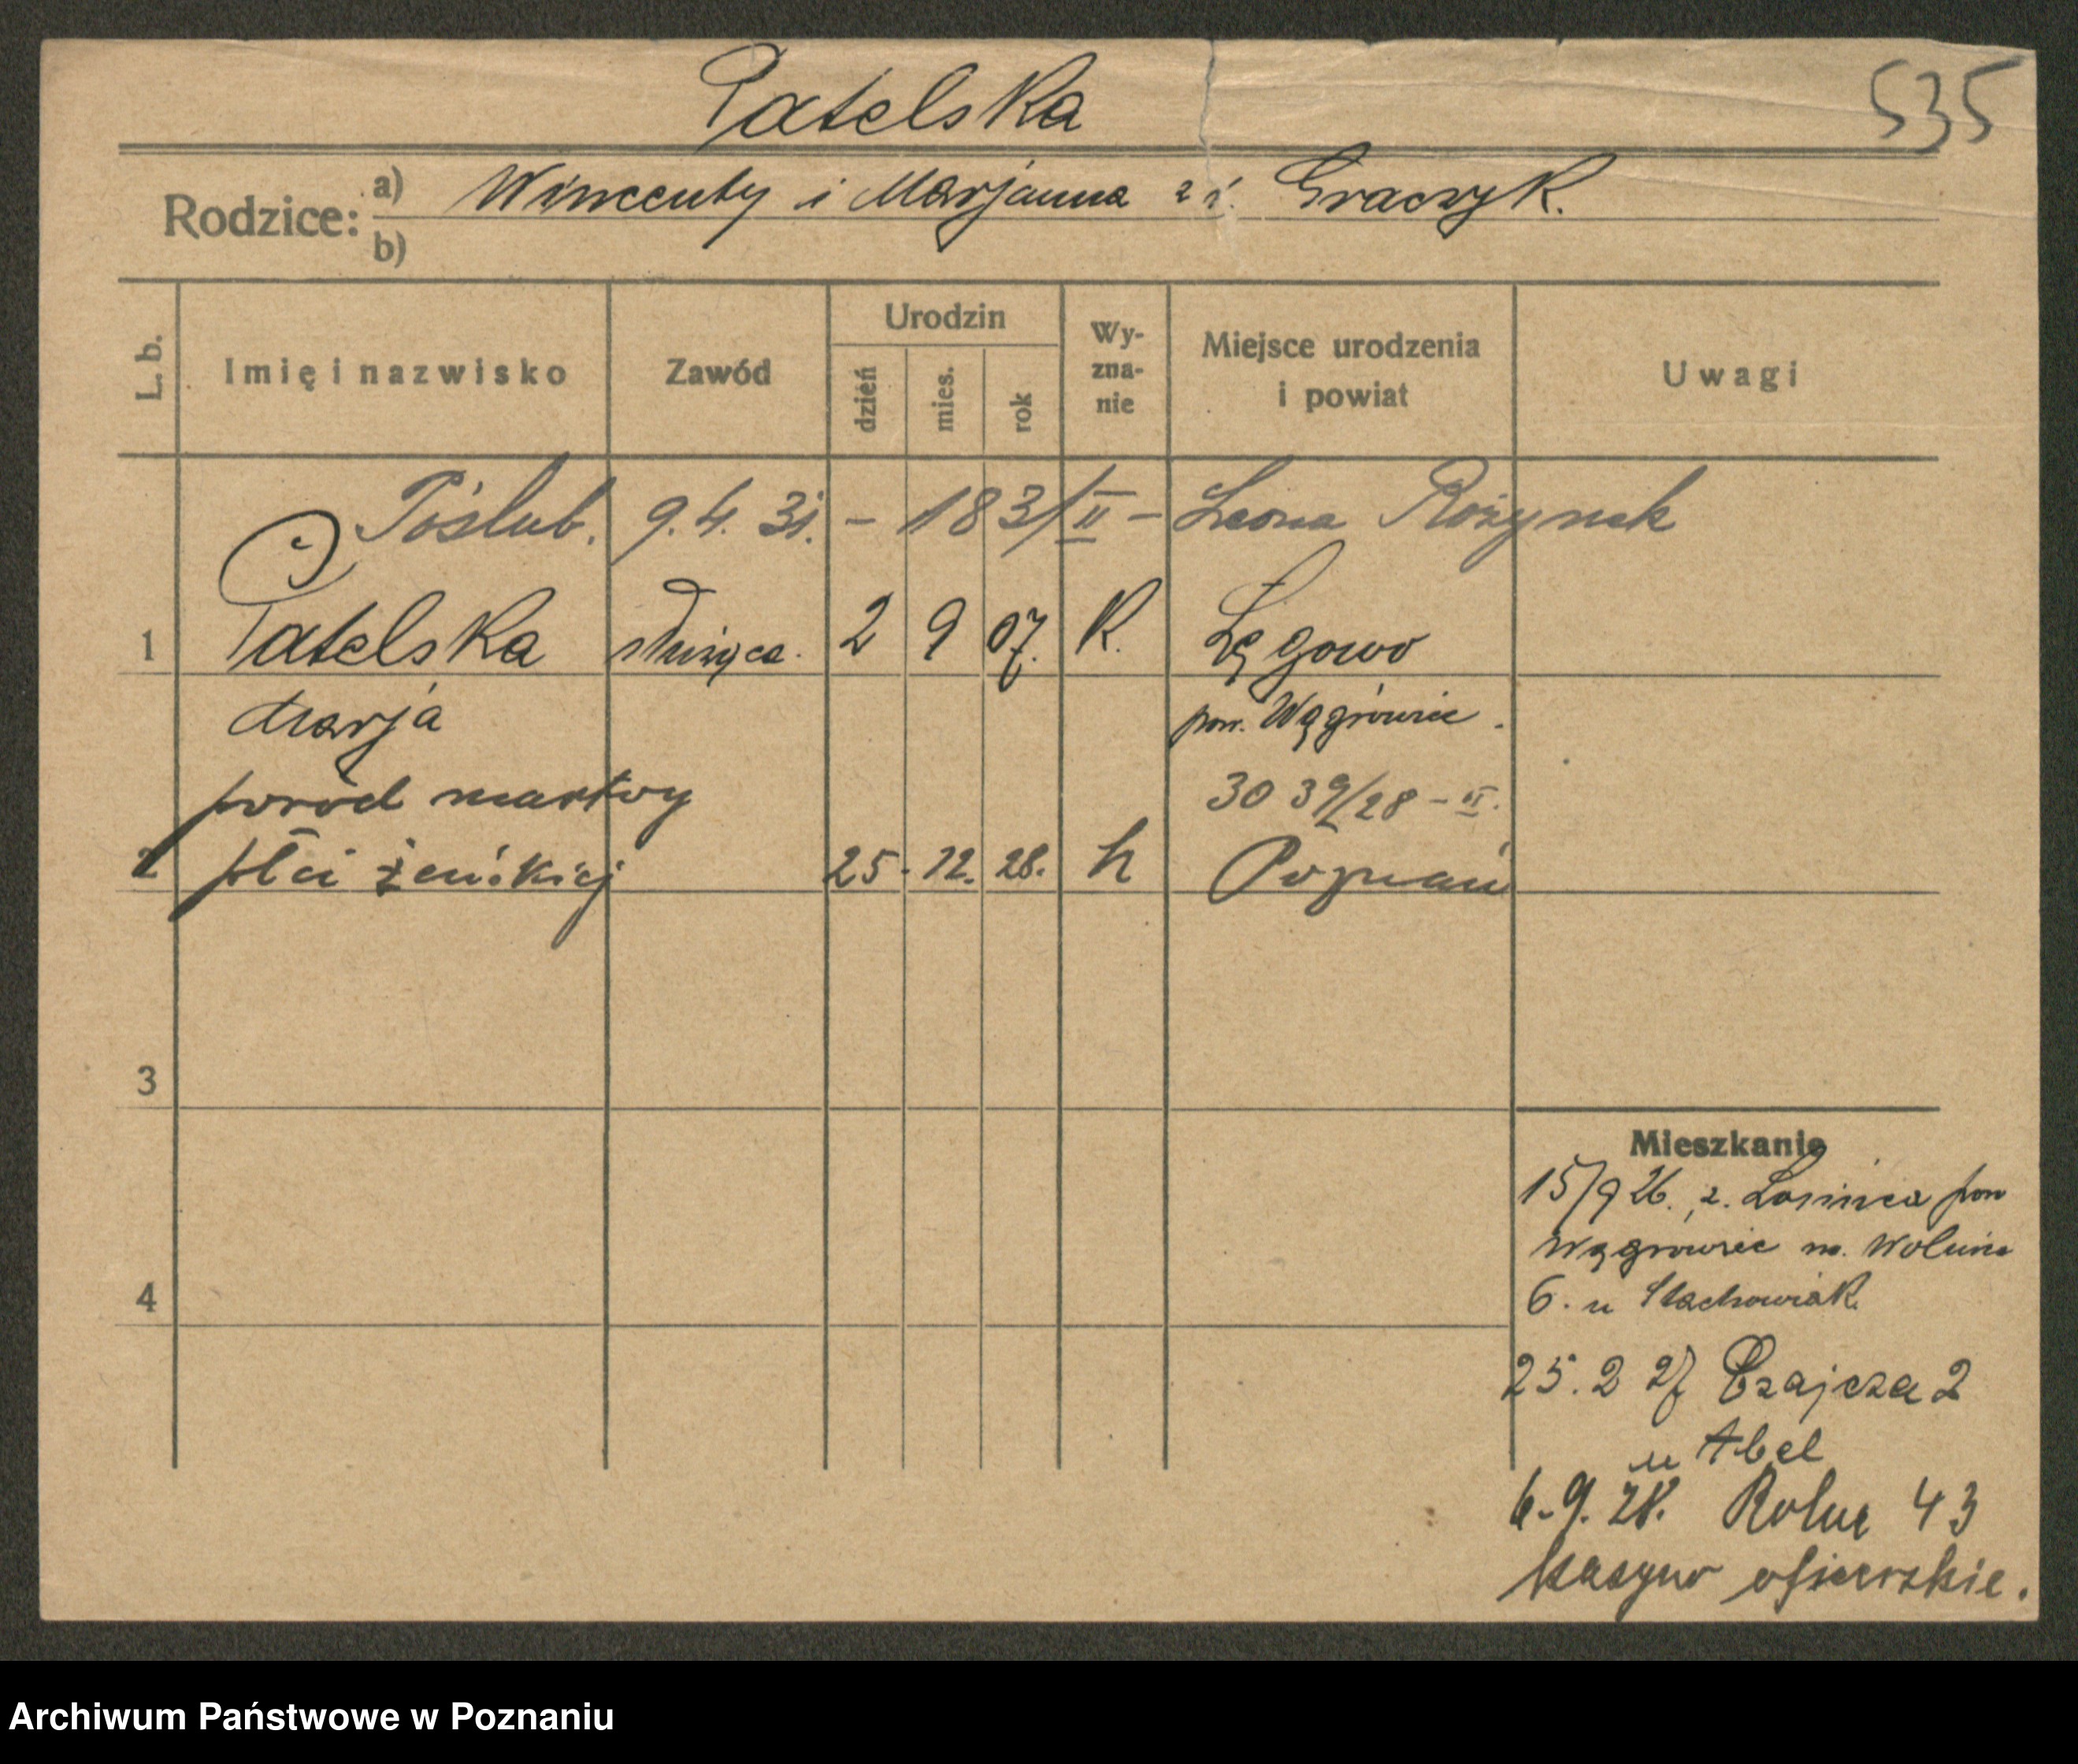 Patelska
535
Rodzice: a) Wincenty i Marjanna z d. Graczyk.
b)
L. b.
Imię i nazwisko
Zawód
Urodzin
dzień
mies.
rok
Wy-
zna-
nie
Miejsce urodzenia
i powiat
Uwagi
Poślub. 9.4.31. – 183/II – Leona Rożynek
1 Patelska służąca. 2 9 07. K. Łęgowo
Marja pow. Wągrówiec.
poród martwy 3039/28 – II.
2 płci żeńskiej 25. 12. 28. k Poznań
3
4
Mieszkanie
15/9 26. z. pow
Wągrowiec
6. u Stachowiak
25. 2 27 Czajcza 2
u Abel
6. 9. 28. Rolna 43
kasyno oficerskie.
Archiwum Państwowe w Poznaniu